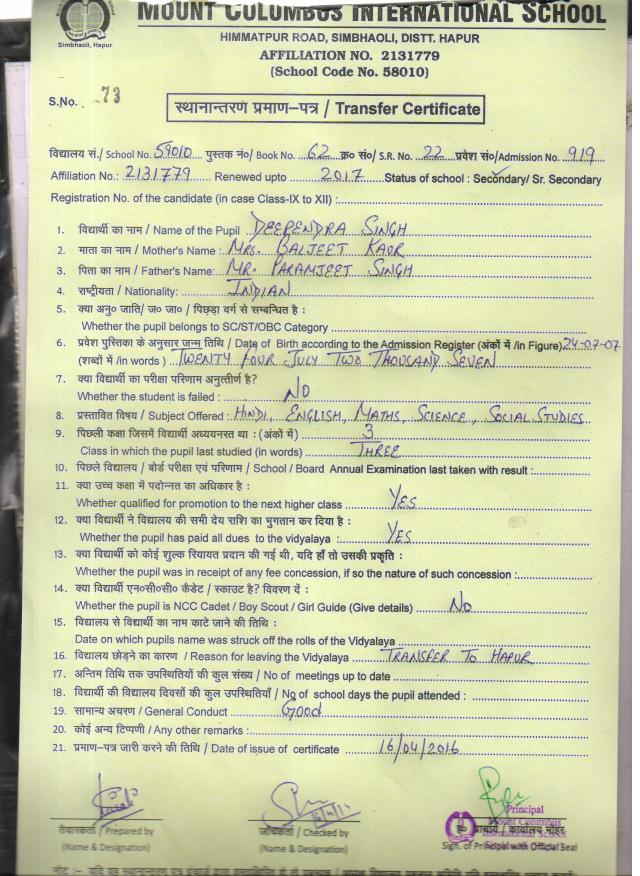 MOUNT COLUMBUS INTERNATIONAL SCHOOL
Simbhaoli, Hapur
HIMMATPUR ROAD, SIMBHAOLI, DISTT. HAPUR
AFFILIATION NO. 2131779
(School Code No. 58010)
S.No. 73
स्थानान्तरण प्रमाण–पत्र / Transfer Certificate
विद्यालय सं./ School No. 59010 पुस्तक नं०/ Book No. 62 क्र० सं०/ S.R. No. 22 प्रवेश सं०/Admission No. 919
Affiliation No.: 2131779 Renewed upto 2017 Status of school : Secondary/ Sr. Secondary
Registration No. of the candidate (in case Class-IX to XII) :
1. विद्यार्थी का नाम / Name of the Pupil DEEPENDRA SINGH
2. माता का नाम / Mother's Name : MRS. BALJEET KAUR
3. पिता का नाम / Father's Name: MR. PARAMJEET SINGH
4. राष्ट्रीयता / Nationality: INDIAN
5. क्या अनु० जाति/ ज० जा० / पिछड़ा वर्ग से सम्बन्धित है :
Whether the pupil belongs to SC/ST/OBC Category
6. प्रवेश पुस्तिका के अनुसार जन्म तिथि / Date of Birth according to the Admission Register (अंकों में /in Figure) 24-07-07
(शब्दों में /in words ) TWENTY FOUR JULY TWO THOUSAND SEVEN
7. क्या विद्यार्थी का परीक्षा परिणाम अनुत्तीर्ण है?
Whether the student is failed : NO
8. प्रस्तावित विषय / Subject Offered : HINDI, ENGLISH, MATHS, SCIENCE, SOCIAL STUDIES
9. पिछली कक्षा जिसमें विद्यार्थी अध्ययनरत था : (अंकों में ) 3
Class in which the pupil last studied (in words) THREE
10. पिछले विद्यालय / बोर्ड परीक्षा एवं परिणाम / School / Board Annual Examination last taken with result :
11. क्या उच्च कक्षा में पदोन्नत का अधिकार है :
Whether qualified for promotion to the next higher class YES
12. क्या विद्यार्थी ने विद्यालय की सभी देय राशि का भुगतान कर दिया है :
Whether the pupil has paid all dues to the vidyalaya : YES
13. क्या विद्यार्थी को कोई शुल्क रियायत प्रदान की गई थी, यदि हाँ तो उसकी प्रकृति :
Whether the pupil was in receipt of any fee concession, if so the nature of such concession :
14. क्या विद्यार्थी एन०सी०सी० कैडेट / स्काउट है? विवरण दें :
Whether the pupil is NCC Cadet / Boy Scout / Girl Guide (Give details) NO
15. विद्यालय से विद्यार्थी का नाम काटे जाने की तिथि :
Date on which pupils name was struck off the rolls of the Vidyalaya
16. विद्यालय छोड़ने का कारण / Reason for leaving the Vidyalaya TRANSFER TO HAPUR
17. अन्तिम तिथि तक उपस्थितियों की कुल संख्या / No of meetings up to date
18. विद्यार्थी की विद्यालय दिवसों की कुल उपस्थितियाँ / No of school days the pupil attended :
19. सामान्य अचरण / General Conduct Good
20. कोई अन्य टिप्पणी / Any other remarks :
21. प्रमाण–पत्र जारी करने की तिथि / Date of issue of certificate 16/04/2016
तैयारकर्ता / Prepared by
(Name & Designation)
जाँचकर्ता / Checked by
(Name & Designation)
Principal
Mount Columbus
International School
ह० प्राचार्य / कार्यालय मोहर
Sign. of Principal with Official Seal